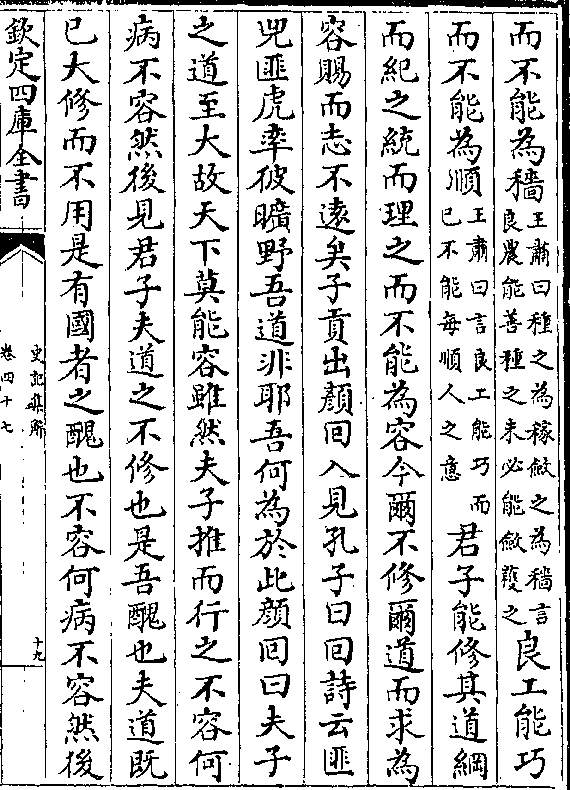 而不能為穡王肅曰種之為稼斂之為穡言良農能善種之未必能斂穫之良工能巧
而不能為順王肅曰言良工能巧而已不能每順人之意君子能修其道綱
而紀之統而理之而不能為容今爾不修爾道而求為
容賜而志不遠矣子貢出顏回入見孔子曰回詩云匪
兕匪虎率彼曠野吾道非耶吾何為於此顏回曰夫子
之道至大故天下莫能容雖然夫子推而行之不容何
病不容然後見君子夫道之不修也是吾醜也夫道既
已大修而不用是有國者之醜也不容何病不容然後
欽定四庫全書
史記集解
卷四十七
十九